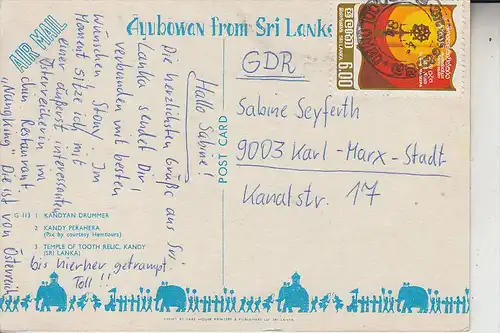 AIR MAIL
Ayubowan from Sri Lanka
Hallo Sabine!
Die herzlichsten Grüße aus Sri
Lanka sendet Dir!
verbunden mit besten
Wünschen Stony. Im
Moment sitze ich mit
einer äußerst interessanten
Österreicherin im
chin. Restaurant
"Nangking". Da ist von Österreich
bis hierher getrampt.
Toll!!
GDR
Sabine Seyferth
9003 Karl-Marx-Stadt
Kanalstr. 17
POST CARD
G 113 1 KANDYAN DRUMMER
2 KANDY PERAHERA
(Pix by courtesy Hemtours)
3 TEMPLE OF TOOTH RELIC, KANDY
(SRI LANKA)
SRI LANKA
6.00